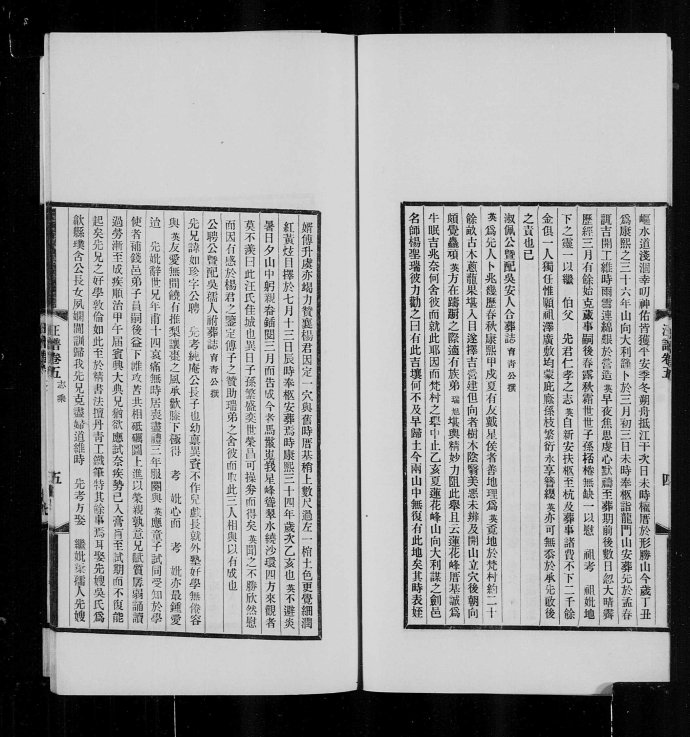 嶇水道淺涸幸叨神佑皆獲平安季冬朔舟抵江干次日未時權厝於形勝山今歲丁丑
爲康熙之三十六年山向大利謹卜於三月初三日未時奉柩詣龍門山安葬先於孟春
諏吉開工維時雨雪連綿艱於營造英早夜焦思虔心默禱至葬期前後數日忽大晴霽
歷經三月有餘始克蕆事嗣後春露秋霜世世子孫祭棬無缺一以慰 祖考 祖妣地
下之靈一以繼 伯父 先君仁孝之志英自新安扶柩至杭及葬事諸費不下二千餘
金俱一人獨任惟願祖澤廣敷均蒙庇廕孫枝繁衍永享簪纓英亦可無忝於承先啟後
之責也已
淑佩公暨配吳安人合葬誌 育青公撰
英爲先人卜兆幾歷春秋康熙甲戌夏有友戴星侯者善地理爲英覓地於梵村約二十
餘畝古木蔥蘢葉堪入目遂擇吉當建但向者樹木陰翳美惡未辨及開山立穴後朝向
頗覺纛頓英方在躊躕之際適有族弟 瑞旭堪輿精妙力阻此舉且云蓮花峰厝基誠爲
牛眠吉兆奈何舍彼而就此耶因而梵村之舉中止乙亥夏蓮花峰山向大利謀之劍邑
名師楊聖瑞彼力勸之曰有此吉壤何不及早歸土今兩山中無復有此地矣其時表姪
婿傅升虞亦竭力贊襄楊君因定一穴與舊時厝基梢上數尺過左一棺土色更覺細潤
紅黃炫目擇於七月十三日辰時奉柩安葬焉時康熙三十四年歲次乙亥也英不避炎
暑日夕山中躬親畚鍤閱三月而告成今者馬鬣嵬峩星峰聳翠水繞沙環四方來觀者
莫不羨曰此汪氏佳城也異日子孫繁盛奕世榮昌可操劵而得矣英聞之不勝欣然慰
而因有感於楊君之鑒定傅子之贊助瑞弟之舍彼而取此三人相與以有成也
公聘公暨配吳孺人祔葬誌 育青公撰
先兄諱如珍字公聘 先考純庵公長子也幼禀異資不作兒戲長就外塾好學無倦容
與英友愛無間饒有推梨讓棗之風承歡膝下極得 考 妣心而 考 妣亦最鍾愛
迨 先妣辭世兄年甫十四哀痛無時居喪盡禮三年服闋與英應童子試同受知於學
使者補錢邑弟子員嗣後益下帷攻苦共相砥礪圖上進以榮親孰意兄賦質孱弱誦讀
過勞漸至成疾順治甲午屆賓興大典兄猶欲應試奈疾勢已入膏肓至試期而不復能
起矣先兄之好學敦倫如此至於精書法擅丹青工鐵筆特其餘事焉耳娶先嫂吳氏爲
歙縣璞含公長女夙嫻閫訓歸我先兄克盡婦道維時 先考方娶 繼妣葉孺人先嫂
汪譜卷五
四
汪譜卷五
志乘
五